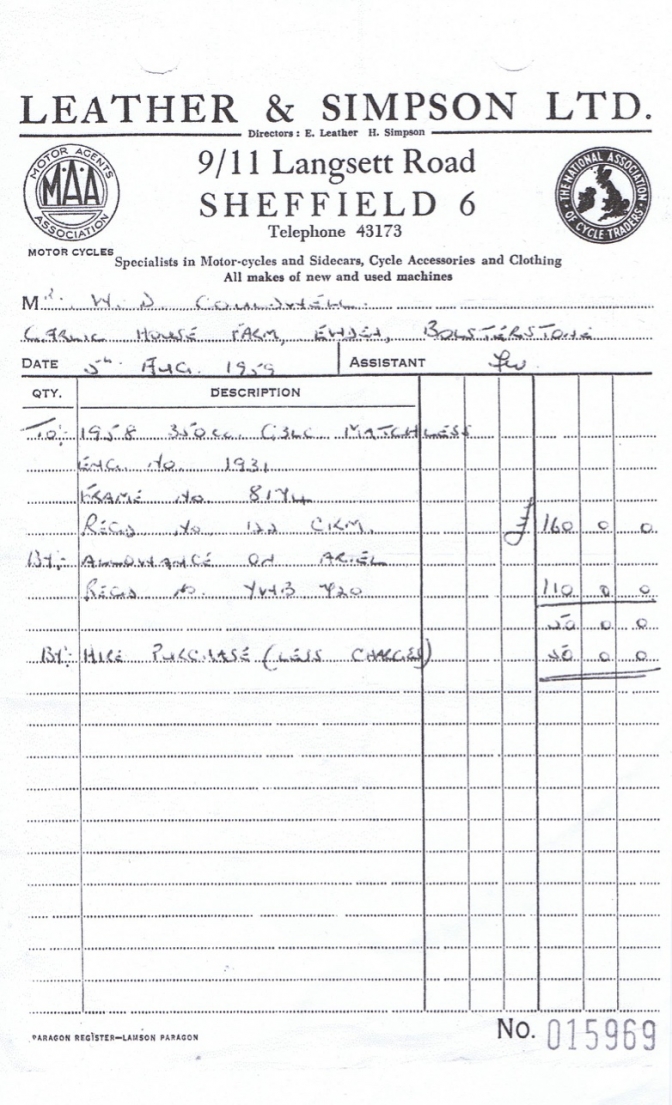 LEATHER & SIMPSON LTD.
Directors : E. Leather H. Simpson
MOTOR AGENTS
MAA
ASSOCIATION
MOTOR CYCLES
9/11 Langsett Road
SHEFFIELD 6
Telephone 43173
THE NATIONAL ASSOCIATION
OF CYCLE TRADERS
Specialists in Motor-cycles and Sidecars, Cycle Accessories and Clothing
All makes of new and used machines
Mr. W. D.
HOUSE FARM, EWDEN, BOLSTERSTONE
DATE 5th AUG. 1959 ASSISTANT
QTY. DESCRIPTION
To:- 1958 350cc. G3LC MATCHLESS
ENG. No 1931
FRAME No
REGD No 122 £ 160 0 0
BY:- ALLOWANCE ON ARIEL
REGD No. YWB 110 0 0
50 0 0
BY:- HIRE PURCHASE (LESS CHARGES) 50 0 0
PARAGON REGISTER—LAMSON PARAGON
No. 015969